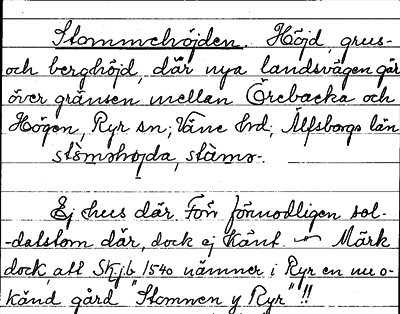 Stommehöjden. Höjd, grus-
och berghöjd, där nya landsvägen går
över gränsen mellan Örebacka och
Högen, Ryr sn; Väne hrd; Älfsborgs län
stòməhöjda, stàmə-.
Ej hus där. Förr förmodligen sol-
-datstom där, dock ej känt. — Märk
dock, att Skjb 1540 nämner i Ryr en nu o-
känd gård "Stommen y Ryr"!!